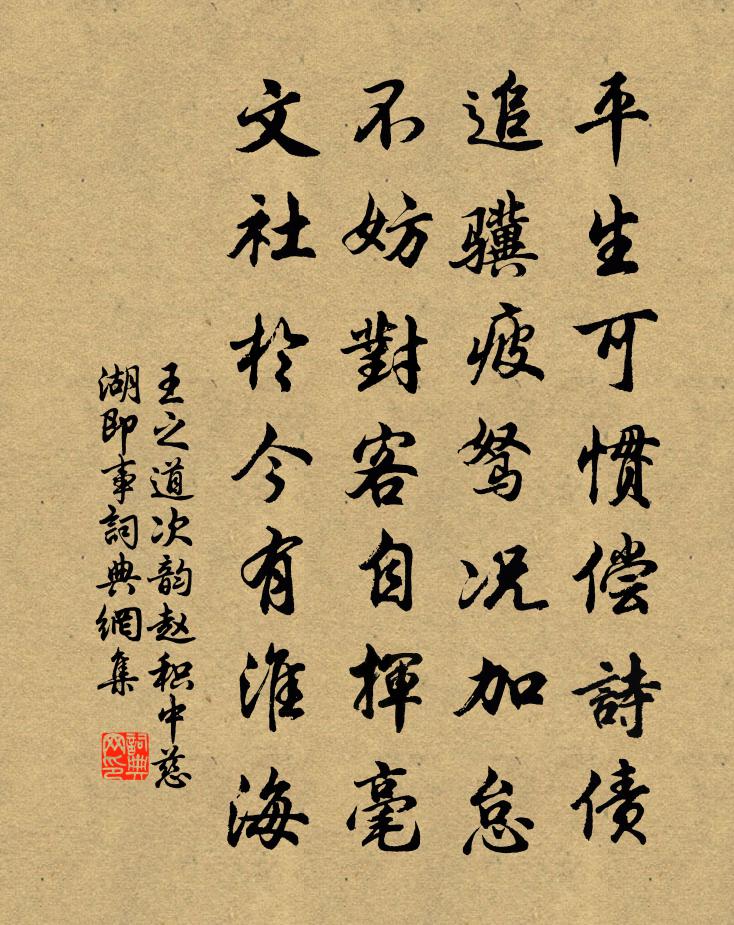 平生可惯偿詩债
追骥疲驽况加怠
不妨對客自揮毫
文社於今有淮海
王之道次韵赵积中慈
湖即事詞典網集
詞典网印